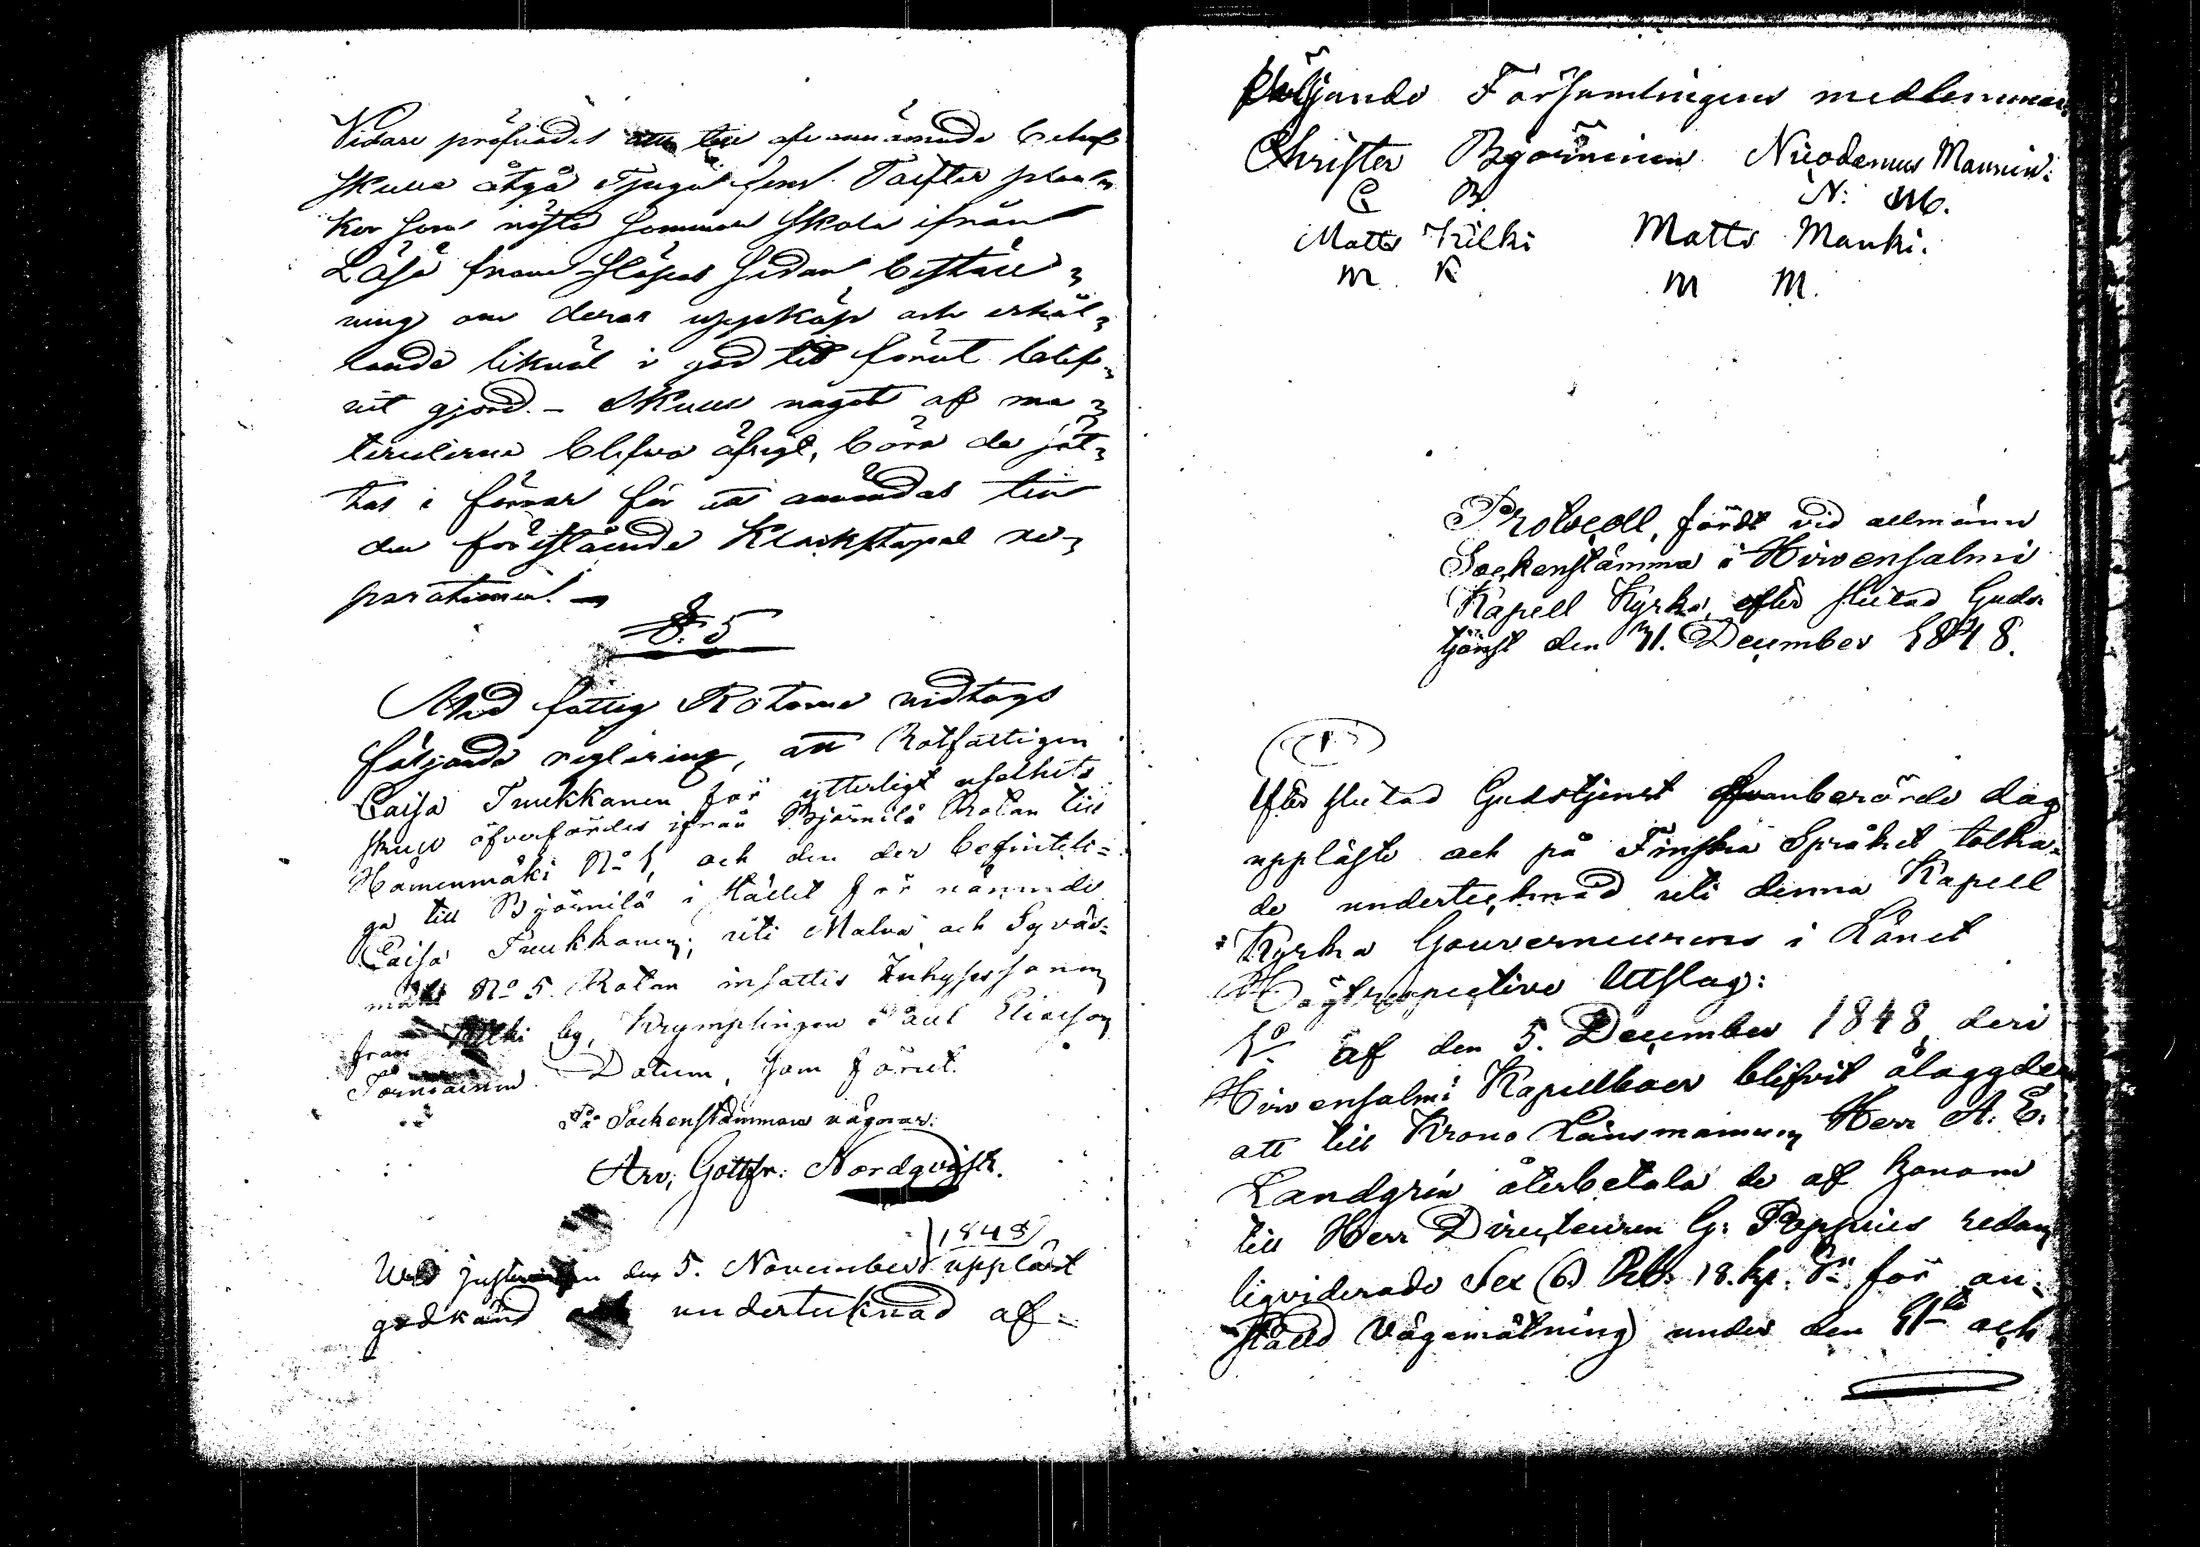 Vidare pröfvades att till ofvannämnde behof
skulle åtgå Tjugu fem Tolfter plan-
kor som nästa sommar skola ifrån
Låså framsläpas sedan beställ-
ning om deras uppköp och erhål-
lande likväl i god tid förut blif-
vit gjord. - Skulle något af ma-
terialierna blifva öfrigt, böra de jat-
tas i förvar för att användas till
den föreslående Klockstapel re-
parationen. -
§. 5
Med fattig Rotarne vidtogs
följande reglering, att Rotfattigen
Caisa Tuukkanen för ytterligt uselhets
skull öfverfördes ifrån Björnilä Rotan till
Hämenmäki No 1, och den der befintli-
ga till Björnilä i stället för nämnde
Caisa Tuukkanen; uti Malva och Syväs-
mäki No 5. Rotan insattes Inhyses sonen
från by, Krymplingen Paul Eliasson
Törniainen. Datum, som förut.
På Sockenstämmans vägnar:
Arv. Gottfr: Nordqvist.
Ved justeringen den 5. November 1848 uppläst
godkänd och undertecknad af
följande Församlingens medlemmar,
Christer Björninen Nicodemus Manninen:
C B N: M.
Matts Kilki Matts Manki.
M K M M.
Protocoll, fördt vid allmänn
Sockenstämma i Hirvensalmi
Kapell Kyrka, efter slutad Guds-
tjänst den 31. December 1848.
1
Efter slutad Gudstjenst ofvanberörde dag
uppläste och på Finska Språket tolka-
de undertecknad uti denna Kapell
Kyrka Gouverneurens i Länet
Högtrespective Utslag:
1o af den 5. December 1848, deri
Hirvensalmi Kapellboer blifvit ålaggde
att till Krono Länsmannen Herr A. E.
Landgrén återbetala de af honom
till Herr Directeuren G: Poppius redan
liqviderade Sex (6) Rub. 18. kp. Sr. för an-
ställd Vägamätning under den 11te och